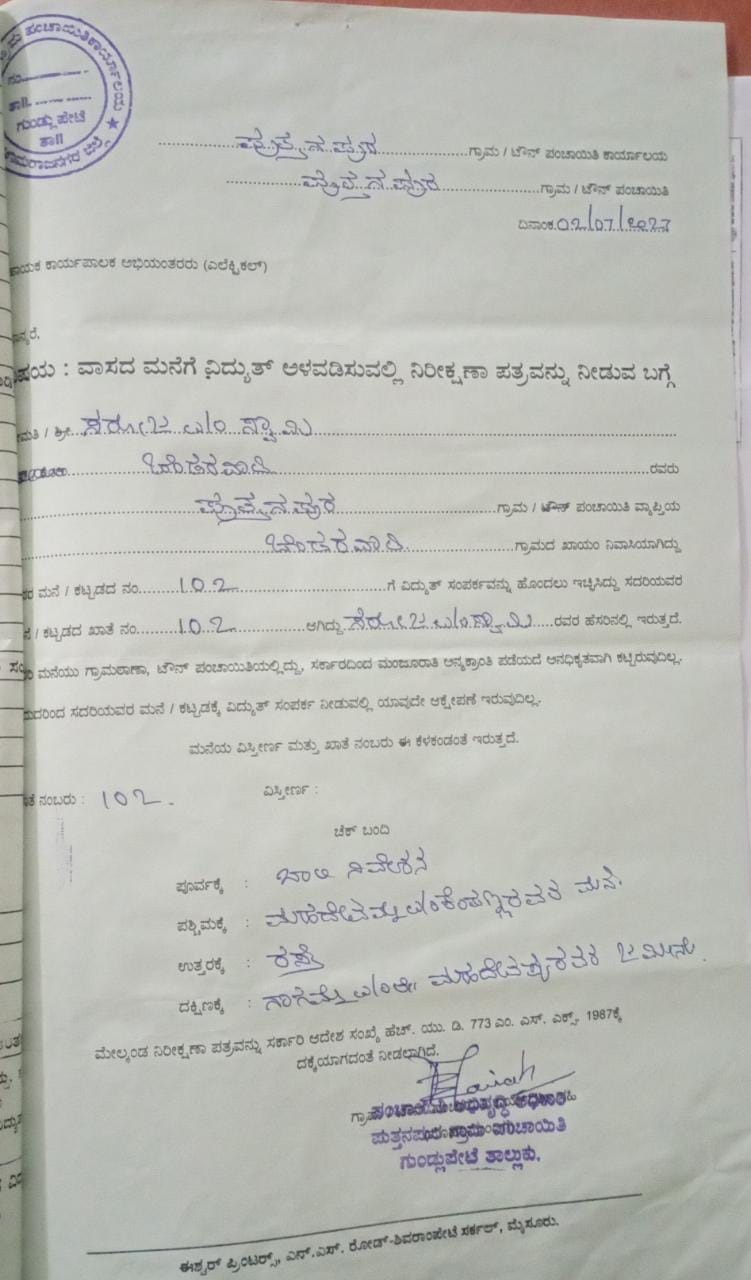 ಪಂಚಾಯಿತಿ ಕಾರ್ಯಾಲಯ
ನಂ.
ತಾ||
ಗುಂಡ್ಲುಪೇಟೆ
ತಾ||
ಪುತ್ತನಪುರ ಗ್ರಾಮ / ಟೌನ್ ಪಂಚಾಯಿತಿ ಕಾರ್ಯಾಲಯ
ಪುತ್ತನಪುರ ಗ್ರಾಮ / ಟೌನ್ ಪಂಚಾಯಿತಿ
ದಿನಾಂಕ 02/07/2027
ಕಾರ್ಯಪಾಲಕ ಅಭಿಯಂತರರು (ಎಲೆಕ್ಟ್ರಿಕಲ್)
: ವಾಸದ ಮನೆಗೆ ವಿದ್ಯುತ್ ಅಳವಡಿಸುವಲ್ಲಿ ನಿರೀಕ್ಷಣಾ ಪತ್ರವನ್ನು ನೀಡುವ ಬಗ್ಗೆ
/ ಶ್ರೀ. ಸರೋಜ W/o ಸ್ವಾಮಿ
ರವರು
ಪುತ್ತನಪುರ ಗ್ರಾಮ / ಟೌನ್ ಪಂಚಾಯಿತಿ ವ್ಯಾಪ್ತಿಯ
ಗ್ರಾಮದ ಖಾಯಂ ನಿವಾಸಿಯಾಗಿದ್ದು
ಮನೆ / ಕಟ್ಟಡದ ನಂ. 102 ಗೆ ವಿದ್ಯುತ್ ಸಂಪರ್ಕವನ್ನು ಹೊಂದಲು ಇಚ್ಛಿಸಿದ್ದು ಸದರಿಯವರ
/ ಕಟ್ಟಡದ ಖಾತೆ ನಂ. 102 ಆಗಿದ್ದು ಸರೋಜ W/o ಸ್ವಾಮಿ ರವರ ಹೆಸರಿನಲ್ಲಿ ಇರುತ್ತದೆ.
ಮನೆಯು ಗ್ರಾಮಠಾಣಾ, ಟೌನ್ ಪಂಚಾಯಿತಿಯಲ್ಲಿದ್ದು, ಸರ್ಕಾರದಿಂದ ಮಂಜೂರಾತಿ ಅನ್ಯಕ್ರಾಂತಿ ಪಡೆಯದೆ ಅನಧಿಕೃತವಾಗಿ ಕಟ್ಟಿರುವುದಿಲ್ಲ.
ಸದರಿಯವರ ಮನೆ / ಕಟ್ಟಡಕ್ಕೆ ವಿದ್ಯುತ್ ಸಂಪರ್ಕ ನೀಡುವಲ್ಲಿ ಯಾವುದೇ ಆಕ್ಷೇಪಣೆ ಇರುವುದಿಲ್ಲ.
ಮನೆಯ ವಿಸ್ತೀರ್ಣ ಮತ್ತು ಖಾತೆ ನಂಬರು ಈ ಕೆಳಕಂಡಂತೆ ಇರುತ್ತದೆ.
ನಂಬರು : 102. ವಿಸ್ತೀರ್ಣ :
ಚೆಕ್ ಬಂದಿ
ಪೂರ್ವಕ್ಕೆ : ಖಾಲಿ ನಿವೇಶನ
ಪಶ್ಚಿಮಕ್ಕೆ : ಮಹದೇವಮ್ಮ ಮನೆ.
ಉತ್ತರಕ್ಕೆ : ರಸ್ತೆ
ದಕ್ಷಿಣಕ್ಕೆ : ನಾಗಮ್ಮ ಜಮೀನು.
ಮೇಲ್ಕಂಡ ನಿರೀಕ್ಷಣಾ ಪತ್ರವನ್ನು ಸರ್ಕಾರಿ ಆದೇಶ ಸಂಖ್ಯೆ ಹೆಚ್. ಯು. ಡಿ. 773 ಎಂ. ಎಸ್. ಎಕ್ಸ್. 1987ಕ್ಕೆ
ದಕ್ಕೆಯಾಗದಂತೆ ನೀಡಲಾಗಿದೆ.
ಪಂಚಾಯಿತಿ ಅಭಿವೃದ್ಧಿ ಅಧಿಕಾರಿ
ಪುತ್ತನಪುರ ಗ್ರಾಮ ಪಂಚಾಯಿತಿ
ಗುಂಡ್ಲುಪೇಟೆ ತಾಲ್ಲೂಕು.
ಈಶ್ವರ್ ಪ್ರಿಂಟರ್ಸ್, ಎನ್.ಎಸ್. ರೋಡ್-ಶಿವರಾಂಪೇಟೆ ಸರ್ಕಲ್, ಮೈಸೂರು.